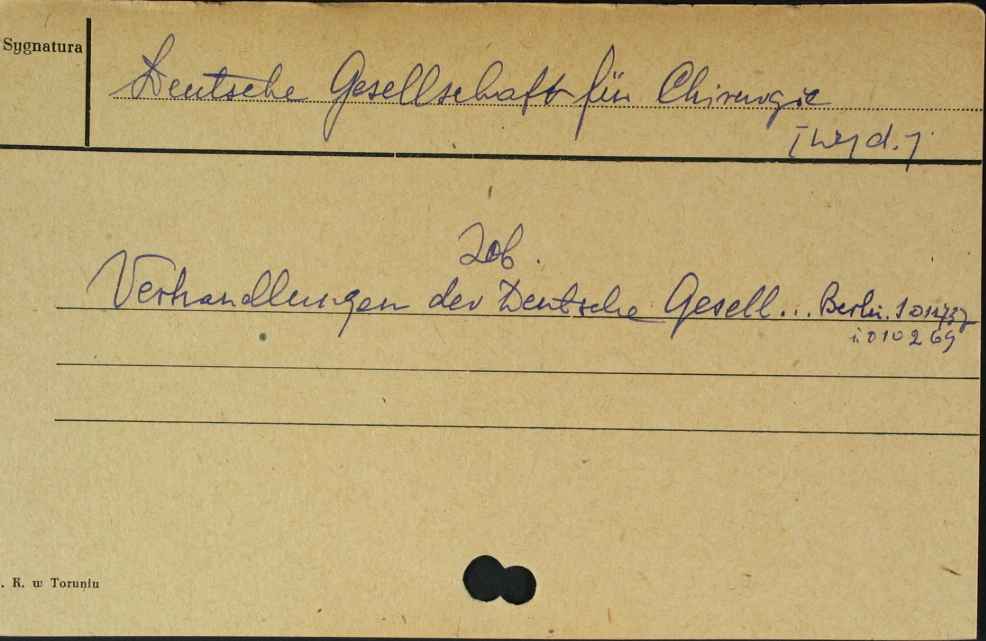 Sygnatura
Deutsche Gesellschaft für Chirurgie
[wyd.]
Zob.
Verhandlungen der Deutsche Gesell... Berlin.
i 010269
. K. w Toruniu